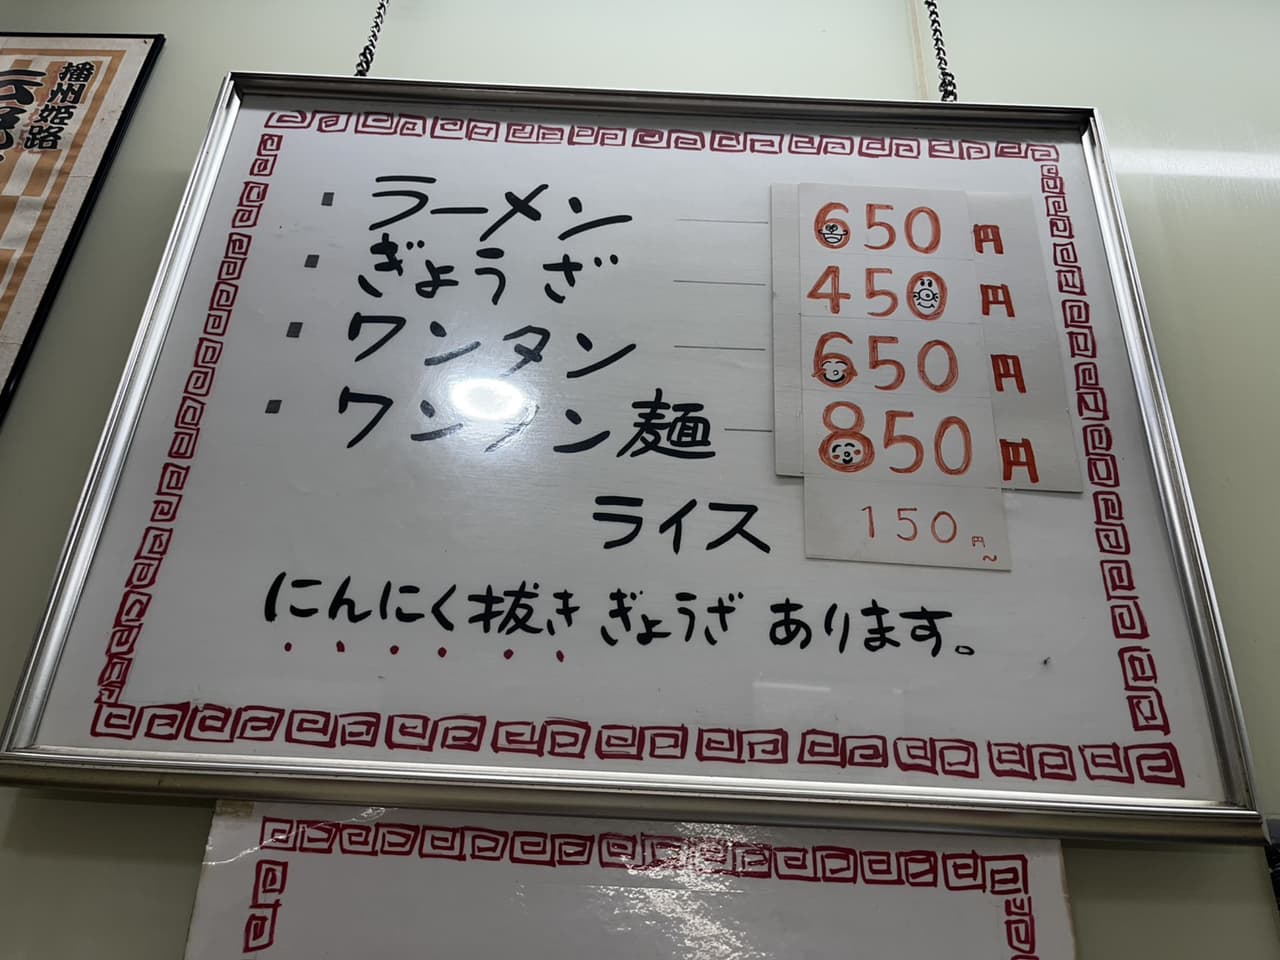 播州姫路
・ラーメン 650円
・ぎょうざ 450円
・ワンタン 650円
・ワンタン麺 850円
ライス 150円~
にんにく抜きぎょうざあります。